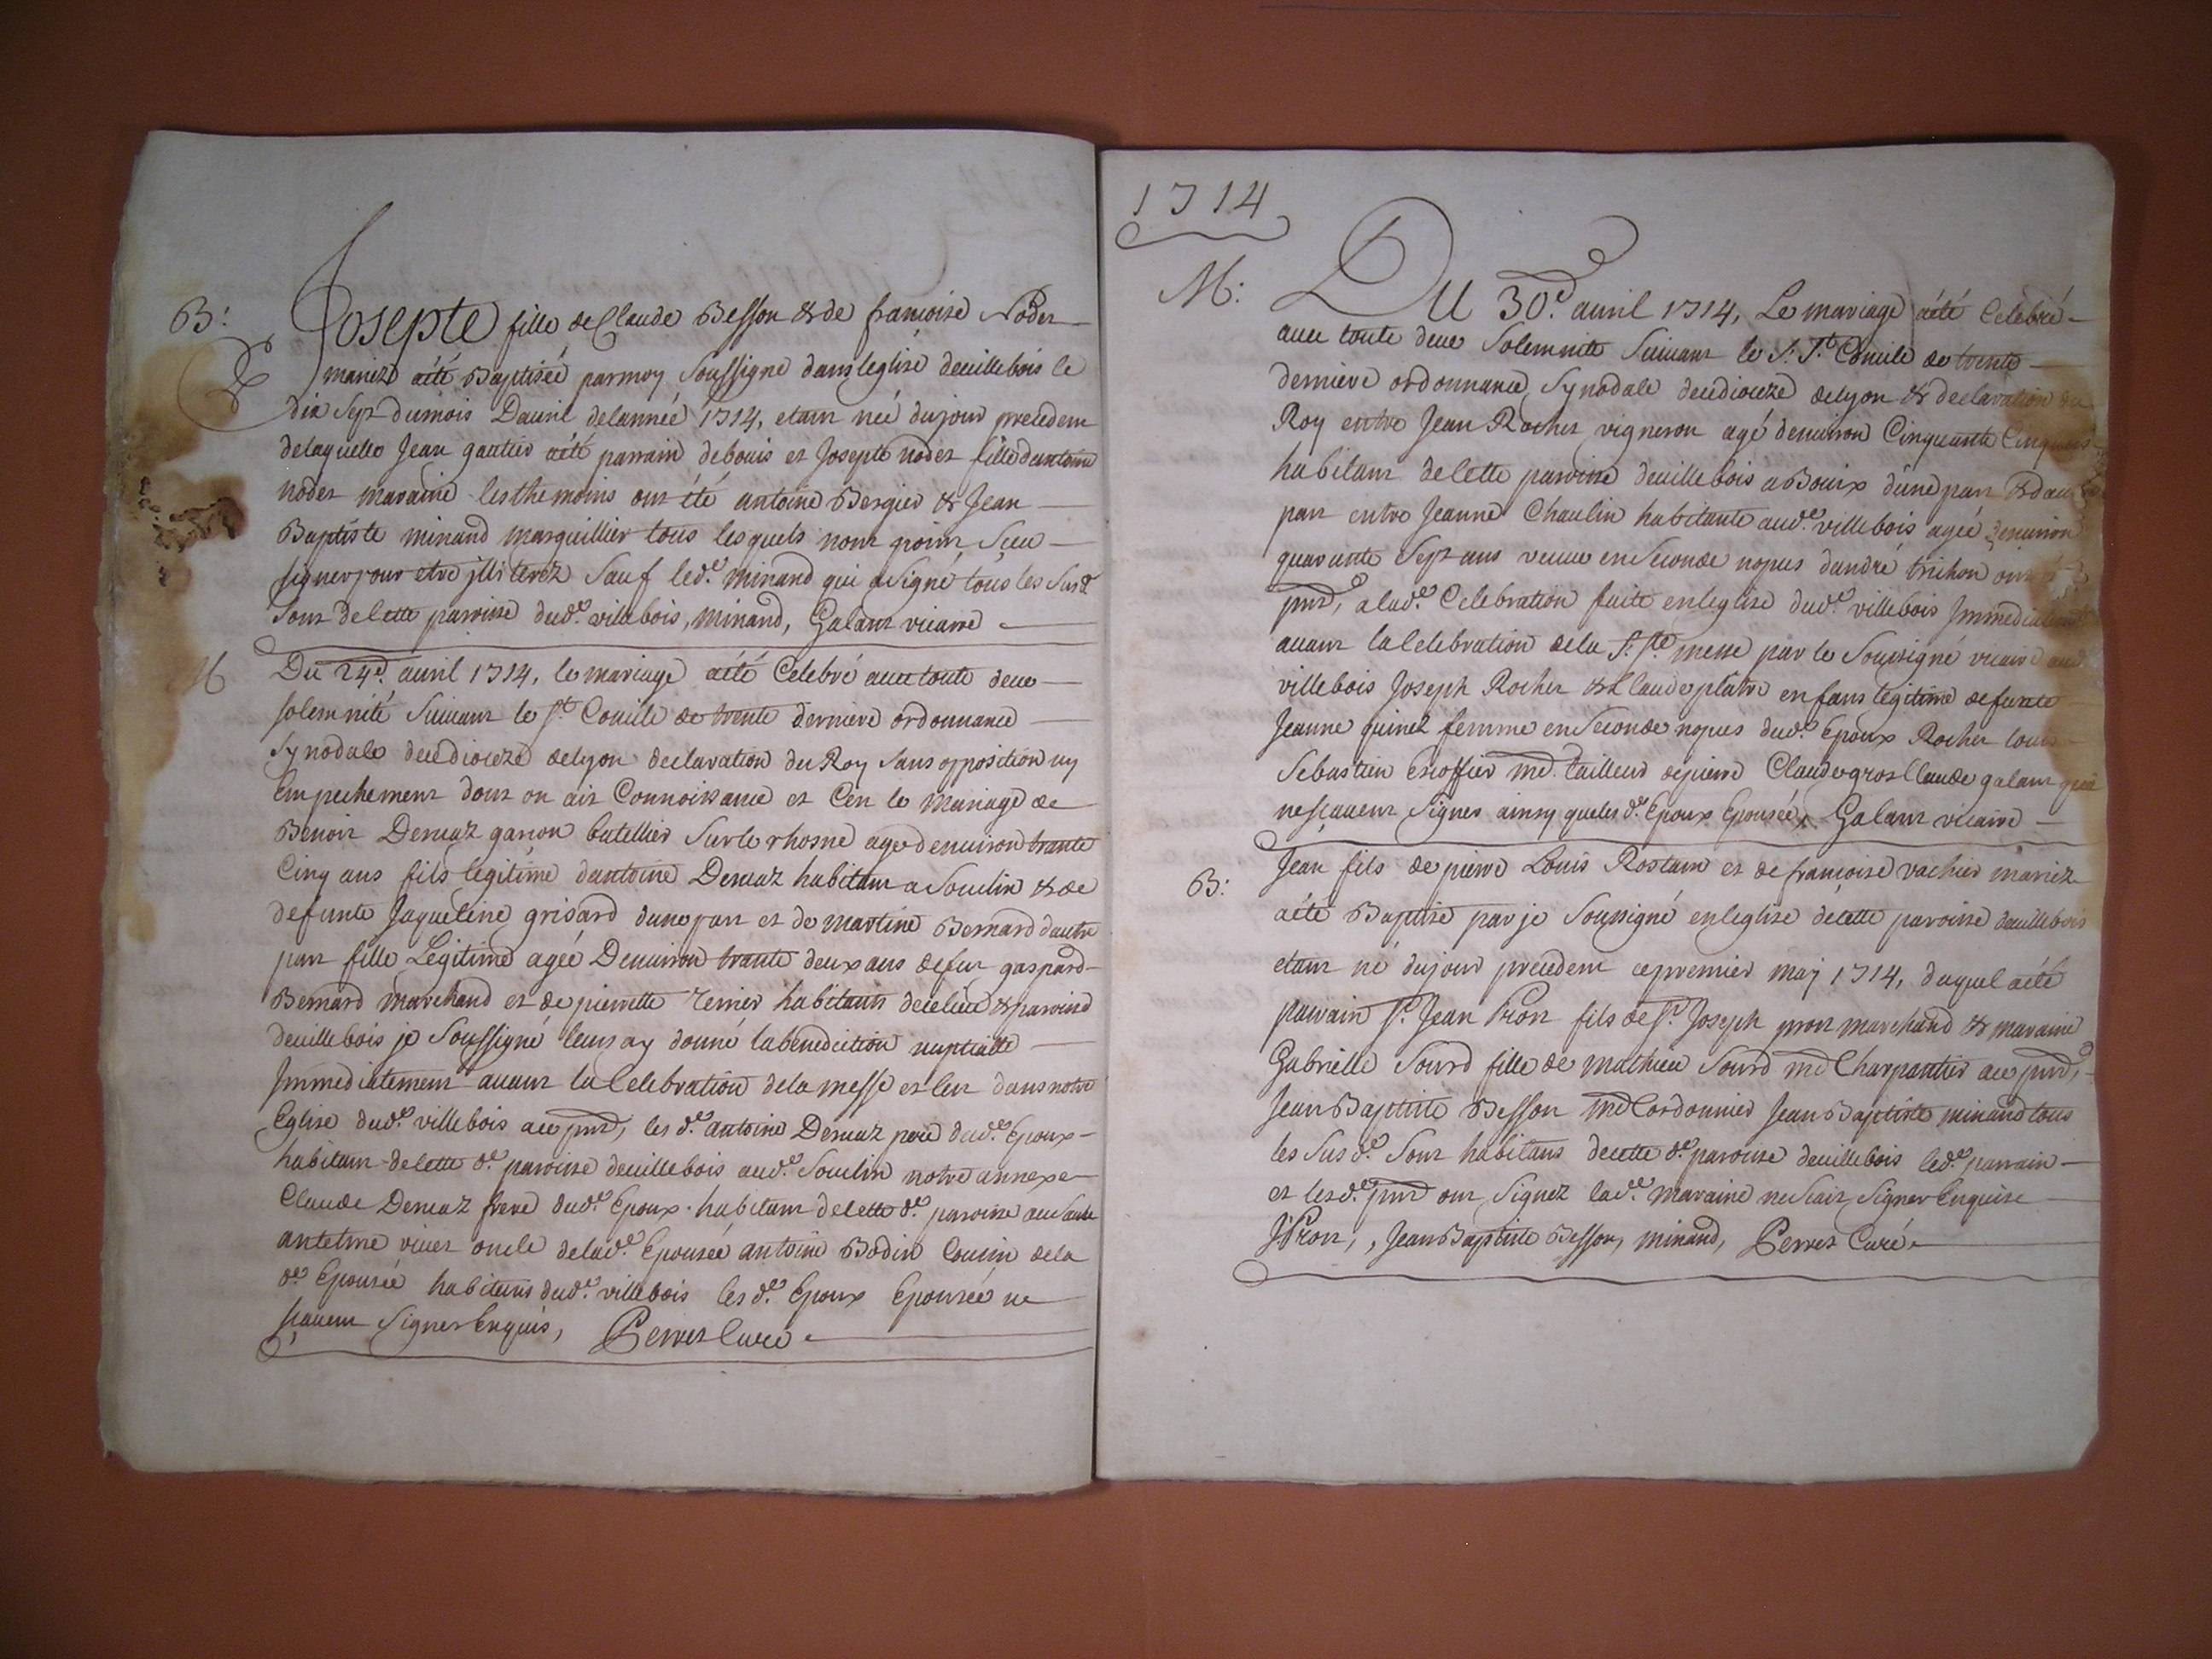 B:
Josepte fille de Claude Besson & de francoise Nodet
mariez aété Baptisée parmoy Soussigné dans leglise deuillebois le
dix Sept dumois Dauril delannée 1714, etant née dujour precedent
delaquelle Jean gautier aété parrain debouis et Josepte nodet fille dantoine
nodet maraine lesthemoins ont été antoine Bergier & Jean
Baptiste minand marguillier tous lesquels nont point Sceu
signer pour etre jlliterez Sauf led.e minand qui a Signé tous les Susd.
Sont de cette paroisse dud.e villebois, minand, Galant vicaire
M
Du 24.e auril 1714, le mariage aété Celebré auec toute deue
solemnité Suiuant le S.t Concile de trente derniere ordonnance
Synodale decedioceze delyon declaration du Roy Sans opposition ny
Empechement dont on ait Connoissance et Cen le Mariage de
Benoit Demaz garson batellier Surle rhosne agé denuiron trante
Cinq ans fils legitime dantoine Demaz habitant a Soulin & de
defunte Jaqueline grisard dune part et de martine Bernard dautre
part fille Legitime agée Denuiron trante deux ans defut gaspard
Bernard Marchand et de pierrette Terrier habitants decelieu & paroisse
deuillebois je Soussigné leurs ay donné la benediction nuptialle
Jmmediatement auant la Celebration dela messe et leu dans notre
Eglise dud.e villebois ace pnd, les d.e antoine Demaz pere dud.e Epoux
habitant de cette d.e paroisse deuillebois aud.e Soulin notre annexe
Claude Demaz frere dud.e Epoux habitant de cette d.e paroisse au Sault
antelme viuet oncle delad.e Epousée antoine Bodin Cousin dela
d.e Epousée habitants dud.e villebois les d.e Epoux Epousée ne
sçauent Signer Enquis, Perret Curé
1714
M:
DU 30.e auril 1714, Le mariage aété Celebré
auec toute deue Solemnité Suiuant le S. S.t Concile de trente
derniere ordonnance Synodale decedioceze delyon & declaration du
Roy entre Jean Rocher vigneron agé denuiron Cinquante Cinq ans
habitant de cette paroisse deuillebois a Bouix dune part & dautre
part entre Jeanne Chaulin habitante aud.e villebois agée denuiron
quarante Sept ans veuue en Seconde nopces dandré trichon ont été
pnd, a lad.e Celebration faite en leglise dud.e villebois Jmmediatement
auant la Celebration dela S. S.te messe par le Soussigné vicaire aud.
villebois Joseph Rocher & Claude platre enfans legitime defunte
Jeanne quinet femme en Seconde nopces dud.e Epoux Rocher louis
Sebastien escoffier md. tailleur de pierre Claude gros Claude galant qui
ne sçauent Signer ainsy que les d.e Epoux Epousée, Galant vicaire
B:
Jean fils de pierre Louis Rostain et de francoise vachier mariez
aété Baptisé par je Soussigné en leglise de cette paroisse deuillebois
etant né dujour precedent ce premier may 1714, duquel aété
parrain S.r Jean Piron fils de S.r Joseph piron marchand & maraine
Gabrielle Sourd fille de Mathieu Sourd md Charpantier ace pnd,
Jean Baptiste Besson md Cordonnier Jean Baptiste minand tous
les Sus d.e Sont habitans decette d.e paroisse deuillebois led.e parrain
et les d.e pnd ont Signez lad.e maraine ne Scait Signer Enquise
J Piron, , Jean Baptiste Besson, minand, Perret Curé